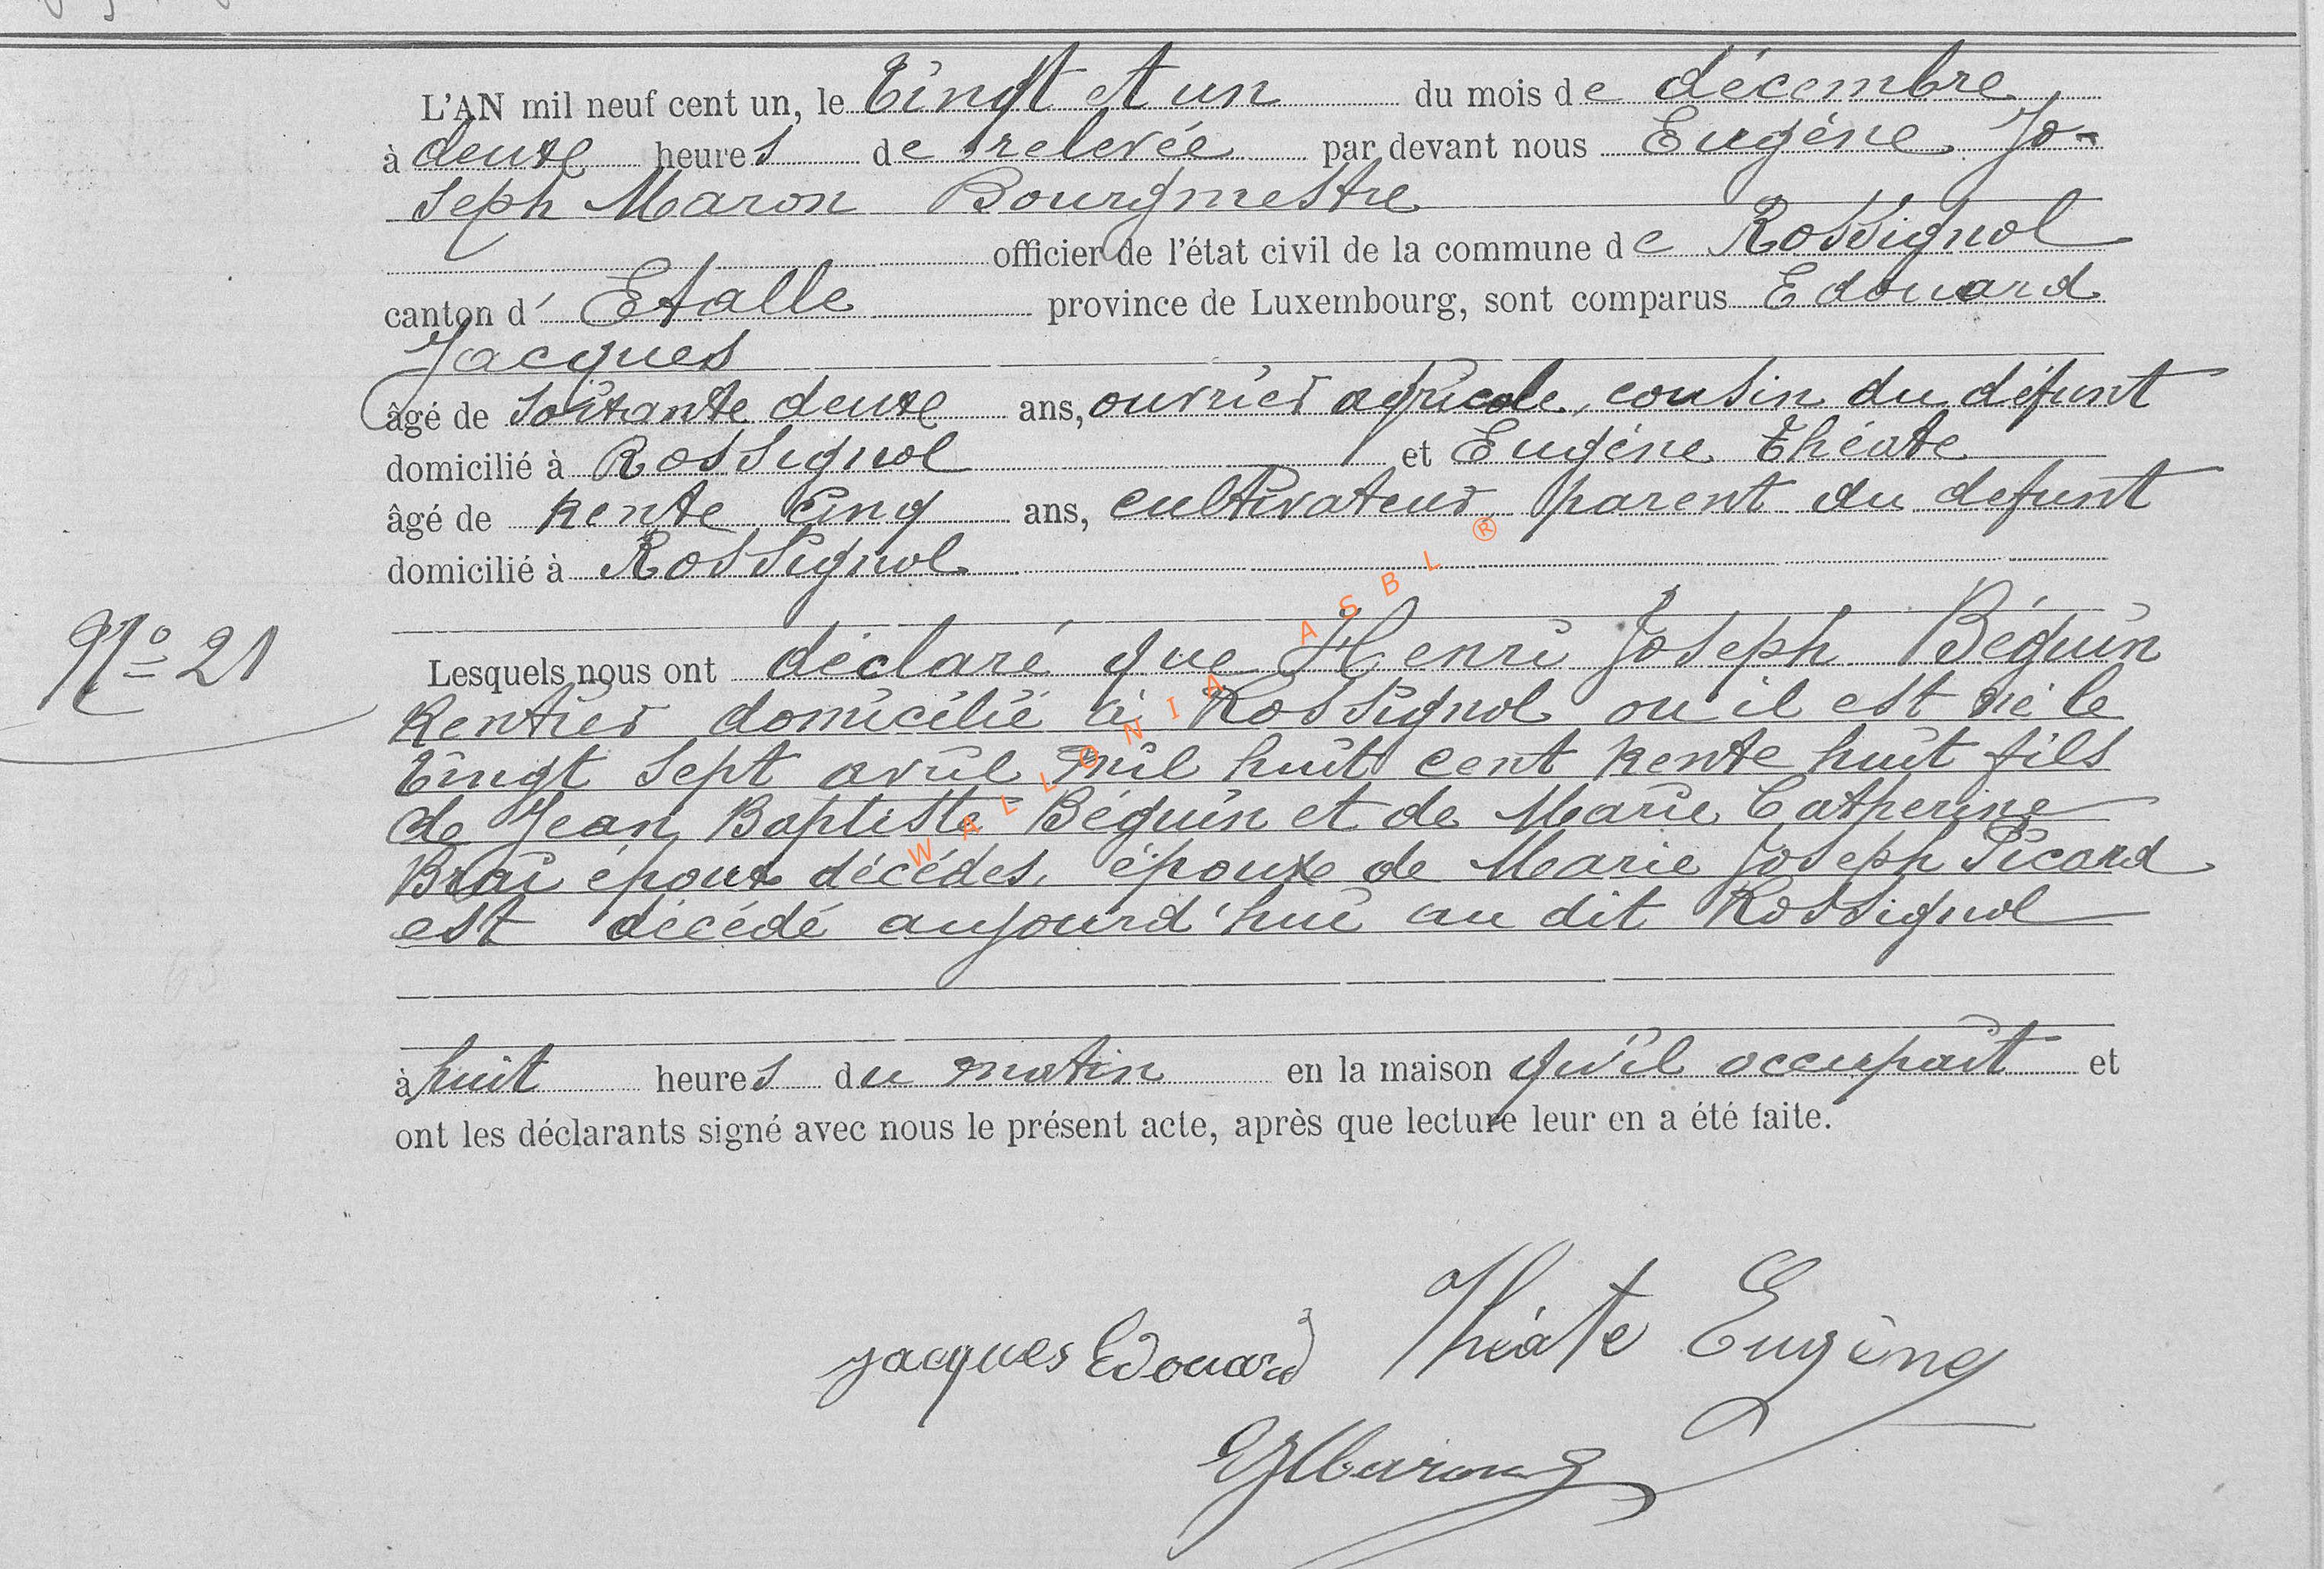 L'AN mil neuf cent un, le Vingt et un du mois de décembre
à deux heures de relevée par devant nous Eugène Jo-
seph Maron Bourgmestre
officier de l'état civil de la commune de Rossignol
canton d' Etalle province de Luxembourg, sont comparus Edouard
Jacques
âgé de soixante deux ans, ouvrier agricole, cousin du défunt
domicilié à Rossignol et Eugène Théate
âgé de trente cinq ans, cultivateur parent du defunt
domicilié à Rossignol
N° 21
Lesquels nous ont déclaré que Henri Joseph Béguin
Rentier domicilié à Rossignol ou il est né le
Vingt sept avril mil huit cent trente huit fils
de Jean Baptiste Béguin et de Marie Catherine
époux décédés, époux de Marie Joseph Picard
est décédé aujourd'hui au dit Rossignol
à huit heures du matin en la maison qu'il occupait et
ont les déclarants signé avec nous le présent acte, après que lecture leur en a été faite.
Jacques Edouard Théate Eugène
EJMaron
WALLONIA ASBL ®